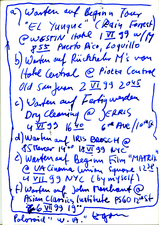 a) Warten auf Beginn Tour
"El Yunque" (Rain Forest)
@ WESTIN Hotel 1 VII 99 w/ M
855 Puerto Rico, Loquillo
b) Warten auf Rückkehr Mi von
Hotel Central @ Piazza Central
Old San Juan 2 VII 99 2045
c) Warten auf Fertigwerden
Dry Cleaning @ JERRIS
4 VII 99 1640 6th Ave / 10th St
d) Warten auf
18 VII 99 NYC
e) Warten auf Beginn Film "MATRIX"
@ UA Cinema Union Square 1325
4 VII 99 NYC (by myself)
f) Warten auf John
@ Asian Classics Institute
6 VII 99
Polaroid